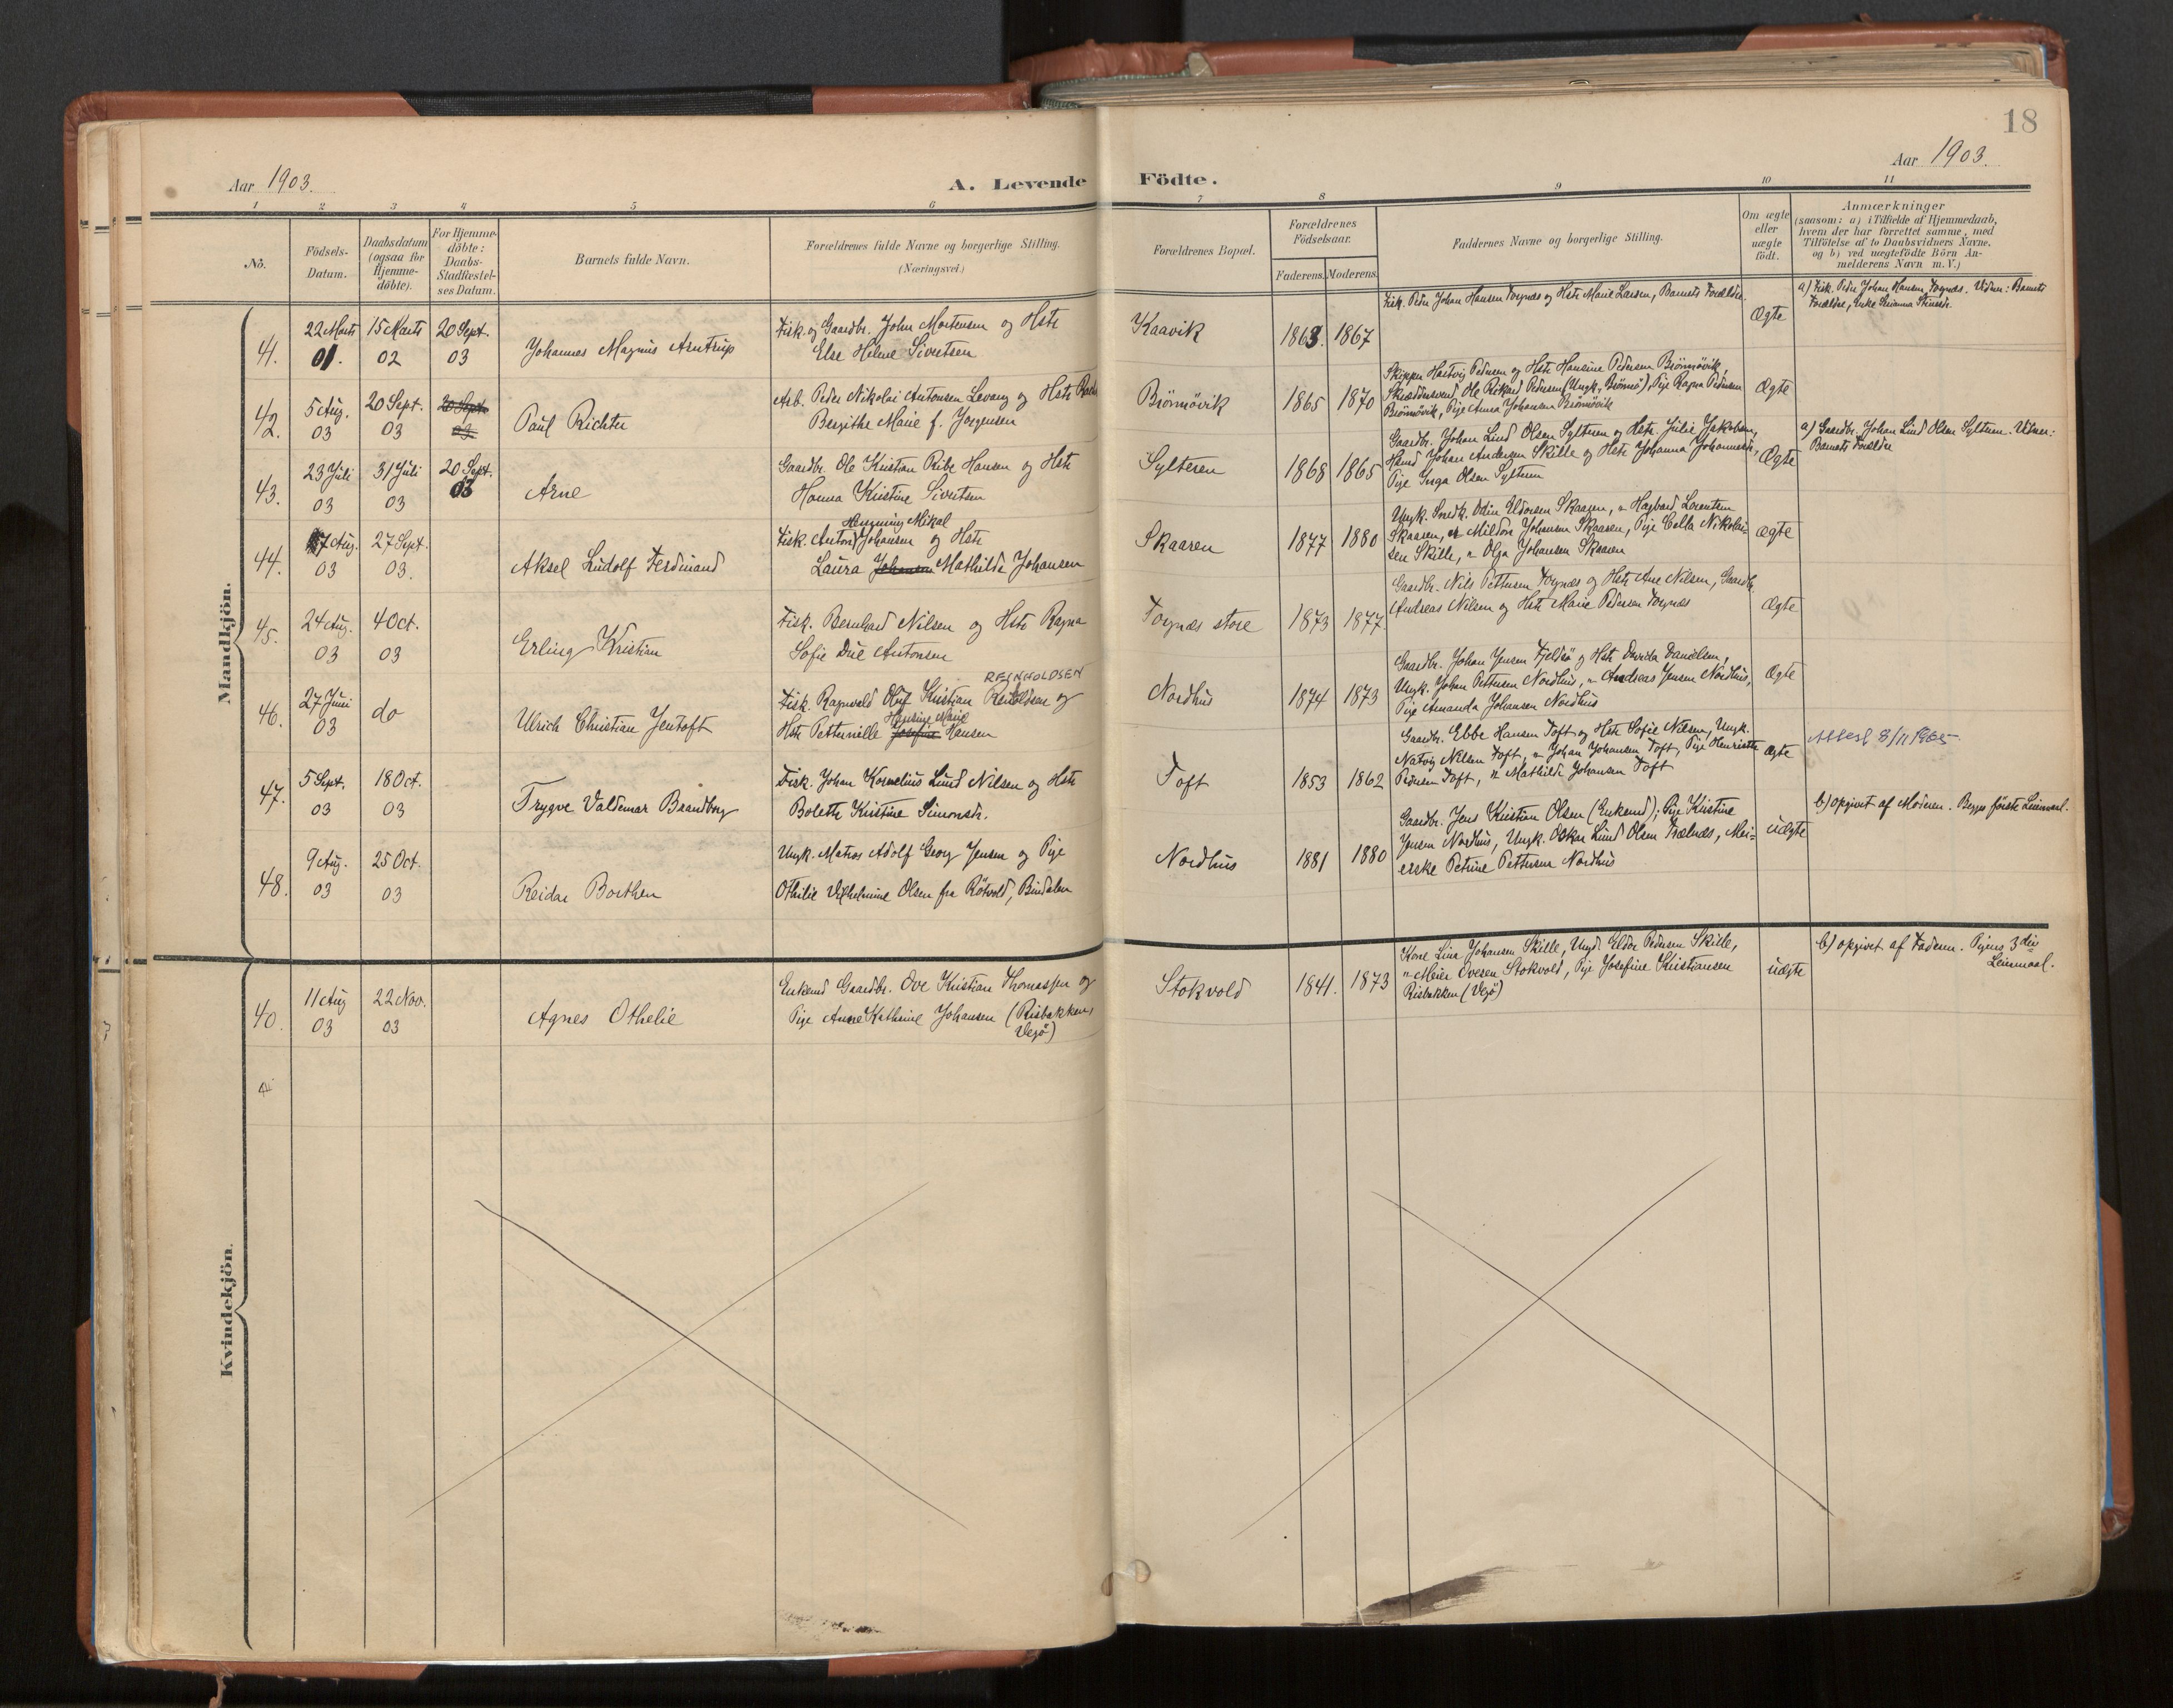 18
Aar 1903.
A. Levende Födte.
Aar 1903.
1 2 3 4 5 6 7 8 9 10 11
No.
Födsels-
Datum.
Daabsdatum
(ogsaa for
Hjemme-
döbte).
For Hjemme-
döbte:
Daabs-
Stadfæstel-
ses Datum.
Barnets fulde Navn.
Forældrenes fulde Navne og borgerlige Stilling.
(Næringsvei.)
Forældrenes Bopæl.
Forældrenes
Födselsaar.
Faderens. Moderens.
Faddernes Navne og borgerlige Stilling.
Om ægte
eller
uægte
födt.
Anmærkninger
(saasom: a) i Tilfælde af Hjemmedaab,
hvem der har forrettet samme, med
Tilföielse af to Daabsvidners Navne,
og b) ved uægtefödte Börn An-
melderens Navn m. V.)
Mandkjön.
41.
22 Marts
01.
15 Marts
02
20 Sept.
03
Johannes Magnus Arntrup
Fisk. og Gaardbr. John Mortensen og Hstr
Else Helene Sivertsen
Kaavik
1863. 1867
Fisk. Peder Johan Hansen Torgnæs og Hstr Marie Larsen, Barnets Forældre.
Ægte
a) Fisk. Peder Johan Hansen, Torgnæs. Vidner: Barnets
Forældre, Enke
42.
5 Aug.
03
20 Sept.
03
20 Sept.
03.
Paul Richter
Arb. Peder Nikolai Antonsen Levang og Hstr
Bergithe Marie f. Jorgensen
Brönnövik
1865 1870
Skipper Hartvig Pedersen og Hstr Hansine Pedersen Brönnövik,
Skræddersvend Ole Rikard Pedersen (Ungk., Brönnö), Pige Ragna Pedersen
Brönnövik, Pige Anna Johansen Brönnövik
Ægte
43.
23 Juli
03
31 Juli
03
20 Sept.
03
Arne
Gaardbr. Ole Kristian Ribe Hansen og Hstr
Hanna Kristine Sivertsen
Sylteren
1868 1865
Gaardbr. Johan Lind Olsen Sylteren og Hstr. Julie Jakobsen,
Hmd Johan Andersen Skille og Hstr Johanna Johannesdr,
Pige Inga Olsen Sylteren
Ægte
a) Gaardbr. Johan Lind Olsen Sylteren. Vidner:
Barnets Forældre
44.
7 Aug.
03
27 Sept.
03.
Aksel Ludolf Ferdinand
Henning Mikal
Fisk. Anton Johansen og Hstr
Laura Johansen Mathilde Johansen
Skaaren
1877 1880
Ungk. Snedk. Odin Eldorsen Skaaren, " Hagbard Lorentsen
Skaaren, " Milton Johansen Skaaren, Pige Cella Nikolai-
sen Skille, " Olga Johansen Skaaren
Ægte
45.
24 Aug.
03
4 Oct.
03
Erling Kristian
Fisk. Bernhard Nilsen og Hstr Ragna
Sofie Due Antonsen
Torgnæs store
1873 1877.
Gaardbr. Nils Pettersen Torgnæs og Hstr Ane Nilsen, Gaardb.
Andreas Nilsen og Hstr Marie Pedersen Torgnæs
Ægte
46.
27 Juni
03
do
Ulrich Christian Jentoft
REINHOLDSEN
Fisk. Ragnvald Oluf Kristian Reinoldsen og
Hansine Marie
Hstr Petternille Josefine Hansen
Nordhus
1874 1873
Gaardbr. Johan Jensen Fjeldsö og Hstr Davida Danielsen,
Ungk. Johan Pettersen Nordhus, " Andreas Jensen Nordhus,
Pige Amanda Johansen Nordhus
Ægte
47.
5 Sept.
03
18 Oct.
03
Trygve Valdemar Brandborg
Fisk. Johan Kornelius Lund Nilsen og Hstr
Boleth Kristine Simonsdr.
Toft
1853 1862
Gaardbr. Ebbe Hansen Toft og Hstr Sofie Nilsen, Ungk.
Natvig Nilsen Toft, " Johan Johansen Toft, Pige Henriette
Pedersen Toft, " Mathilde Johansen Toft
Ægte
Attest 8/11 1965
48.
9 Aug.
03
25 Oct.
03
Reidar Borthen
Ungk. Matros Adolf Georg Jensen og Pige
Othilie Vilhelmine Olsen fra Rötvold, Bindalen
Nordhus
1881 1880
Gaardbr. Jens Kristian Olsen (Enkemd); Pige Kristine
Jensen Nordhus, Ungk. Oskar Lund Olsen Trælnæs, Mei-
erske Petrine Pettersen Nordhus
uægte
b) opgivet af Moderen. Begges förste Leiermaal.
Kvindekjön.
40.
11 Aug
03
22 Nov.
03
Agnes Othelie
Enkemd Gaardbr. Ove Kristian Thomassen og
Pige Anne Kathrine Johansen (Risbakken,
Vegö)
Stokvold
1841. 1873
Kone Lina Johansen Skille, Ungk. Eldor Pedersen Skille,
" Meier Ovesen Stokvold, Pige Josefine Kristiansen
Risbakken (Vegö)
uægte
b) opgivet af Faderen. Pigens 3die
Leiermaal.